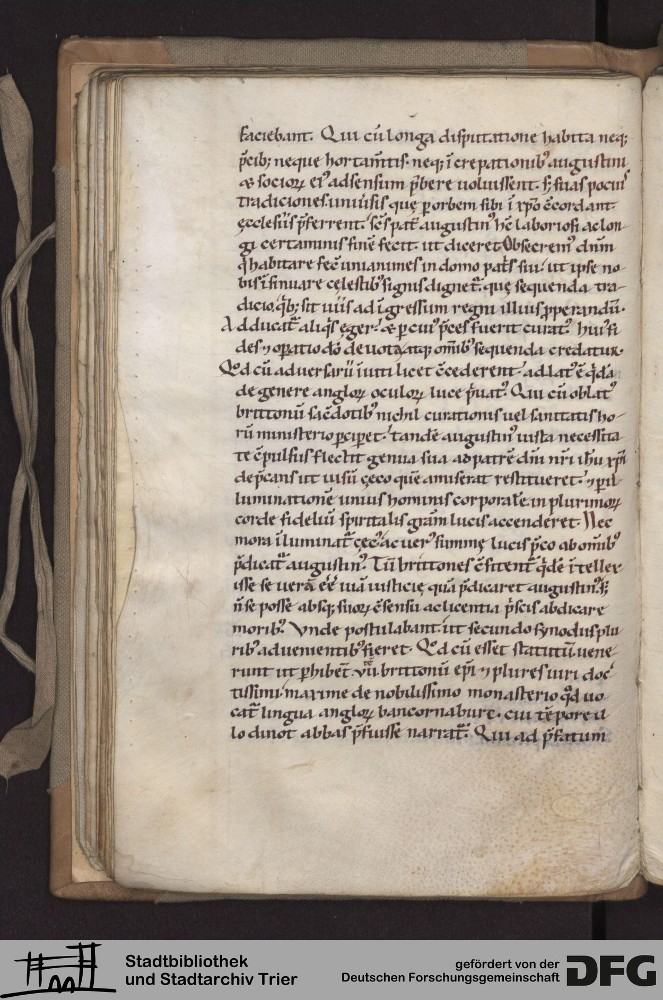 faciebant. Qui cū longa disputatione habita neq;
p̄cib; neque hortam̄tis. neq; īcrepationib; augustini
& socioꝝ ei⁹ adsensum p̄bere uoluissent. s; suas poci⁹
tradiciones uniu̇sis quę ꝑ orbem sibi ī xp̄o c̄cordant
ęcclesiis p̄ferrent. sc̄s pat̄ augustin⁹ hc̄ laboriosi ac lon-
gi certaminis finē fecit. ut diceret. Obsecrem⁹ dn̄m
q̇ habitare fec̄ unianimes in domo pat̄s sui. ut ipse no-
bis īsinuare cęlestib; signis dignet᷑. quę sequenda tra-
dicio. q̇b; sit uiis ad īgressum regni illius ꝓperandū.
Adducat᷑ aliq̇s ęger. & ꝑ cui⁹ p̄ces fuerit curat⁹. hui⁹ fi
des ⁊ oꝑatio dō deuota atq; om̄ib; sequenda credatur.
Qd̄ cū aduersarii īuiti licet c̄cederent. adlat⁹ ē q̇dā
de genere angloꝝ oculoꝝ luce p̄uat⁹. Qui cū oblat⁹
brittonū sac̄dotib; nichil curationis uel sanitatis ho-
rū ministerio ꝑciꝑet. tandē augustin⁹ iusta necessita
te c̄pulsus flectit genua sua ad patrē dn̄i nr̄i ih̄u xp̄i
dep̄cans ut uisū çęco quē amiserat restitueret. ⁊ ꝑ il
luminationē unius hominis corporalē in plurimoꝝ
corde fideliū spiritalis gr̄am lucis accenderet. Nec
mora īluminat᷑ cęc⁹. ac uer⁹ summę lucis p̄co ab om̄ib;
p̄dicat᷑ augustin⁹. Tū brittones c̄fitent᷑ q̇dē ītellex
isse se uerā ēe uiā iusticię quā p̄dicaret augustin⁹. s;
n̄ se posse absq; suoꝝ c̄sensu ac licentia p̄scis abdicare
morib;. Vnde postulabant. ut secundo synodus plu
rib; aduenientib; fieret. Qd̄ cū esset statutū uene-
runt ut ꝑhibēt. vii brittonū ep̄i. ⁊ plures uiri doc
tissimi. maxime de nobilissimo monasterio qd̄ uo-
cat᷑ lingua angloꝝ bancornaburt. cui tēpore il
lo dinot abbas p̄fuisse narrat᷑. Qui ad p̄fatum
Stadtbibliothek
und Stadtarchiv Trier
gefördert von der
Deutschen Forschungsgemeinschaft
DFG